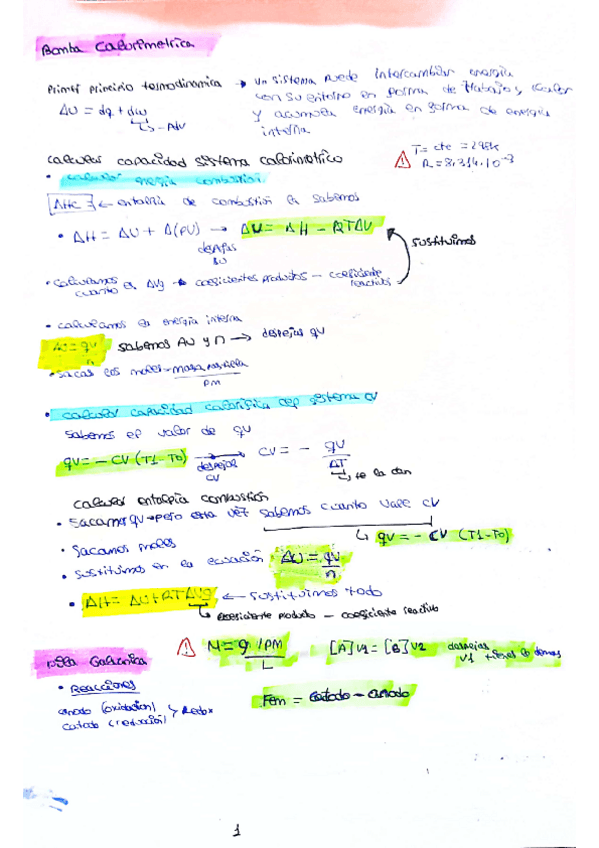 Bomba Calorimetrica
Primer principio termodinamica → Un sistema puede intercambiar energia
con su entorno en forma de trabajo y calor
y acumula energia en forma de energia
interna
ΔU = dq + dw
↳ -PdV
calcular capacidad sistema calorimetrico
⚠ T = cte = 298k
R = 8.314·10⁻³
• calcular energia combustion
ΔHc ← entalpia de combustion la sabemos
• ΔH = ΔU + Δ(PV) → ΔU = ΔH - RTΔV
despejas
ΔU
sustituimos
• calculamos cuanto es ΔVg → coeficientes productos - coeficiente reactivos
• calculamos la energia interna
ΔU = qv/n sabemos ΔU y n → despejas qV
• sacas los moles - masa
PM
• calcular capacidad calorifica del sistema CV
sabemos el valor de qV
qV = - CV (T1 - T0) → CV = - qV/ΔT
despejas
CV
↳ te la dan
calcular entalpia combustion
• Sacamos qV → pero esta vez sabemos cuanto vale CV
↳ qV = - CV (T1 - T0)
• Sacamos moles
• sustituimos en la ecuación ΔU = qv/n
• ΔH = ΔU + RTΔVg ← sustituimos todo
↳ coeficiente producto - coeficiente reactivo
Pila Galvanica
⚠ M = g/PM
L
[A]V1 = [B]V2 despejas
V1
• Reacciones
anodo (oxidacion) > Redox
catodo (reduccion)
Fem = catodo - anodo
1